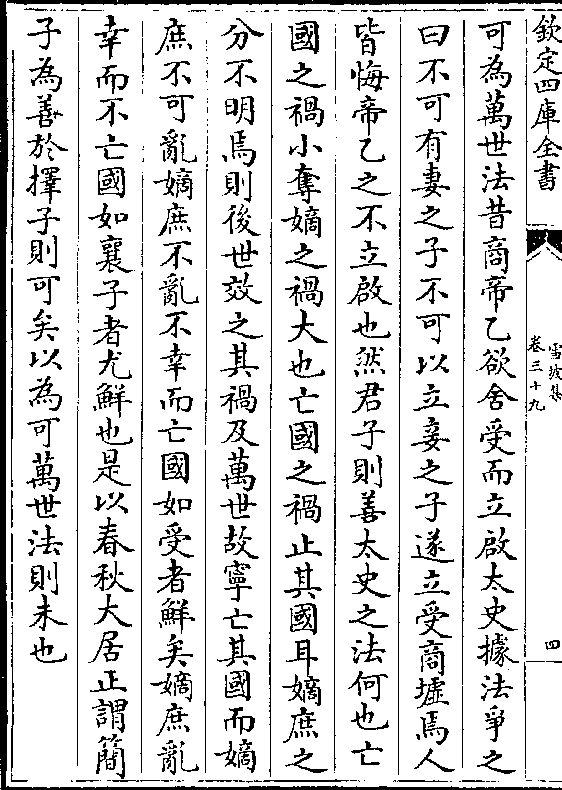 欽定四庫全書
雪坡集
卷三十九
四
可為萬世法昔商帝乙欲舍受而立啟太史據法爭之
曰不可有妻之子不可以立妾之子遂立受商墟焉人
皆悔帝乙之不立啟也然君子則善太史之法何也亡
國之禍小奪嫡之禍大也亡國之禍止其國耳嫡庶之
分不明焉則後世效之其禍及萬世故寧亡其國而嫡
庶不可亂嫡庶不亂不幸而亡國如受者鮮矣嫡庶亂
幸而不亡國如襄子者尤鮮也是以春秋大居正謂簡
子為善於擇子則可矣以為可萬世法則未也